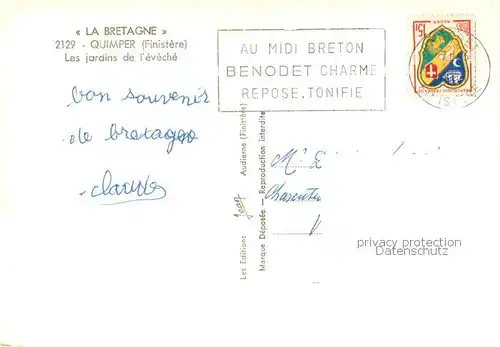 « LA BRETAGNE »
2129 - QUIMPER (Finistère)
Les jardins de l'évêché
AU MIDI BRETON
BENODET CHARME
REPOSE, TONIFIE
bon souvenir
de bretagne
Claude
Les Editions Jean Audierne (Finistère)
Marque Déposée — Reproduction interdite
Charente
privacy protection
Datenschutz